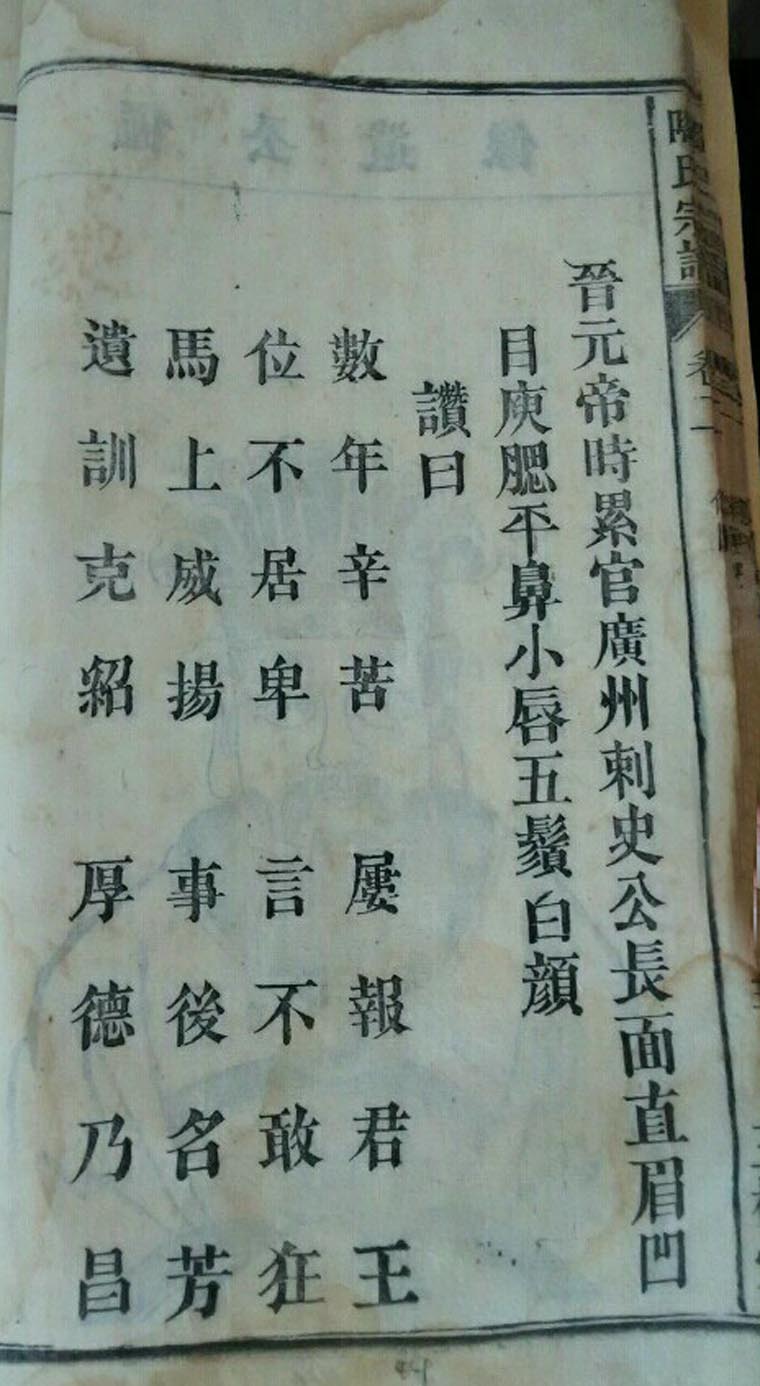 陶氏宗譜
卷二
晉元帝時累官廣州刺史公長面直眉凹
目庾腮平鼻小唇五鬚白顏
讚曰
數年辛苦 屢報君王
位不居卑 言不敢狂
馬上威揚 事後名芳
遺訓克紹 厚德乃昌